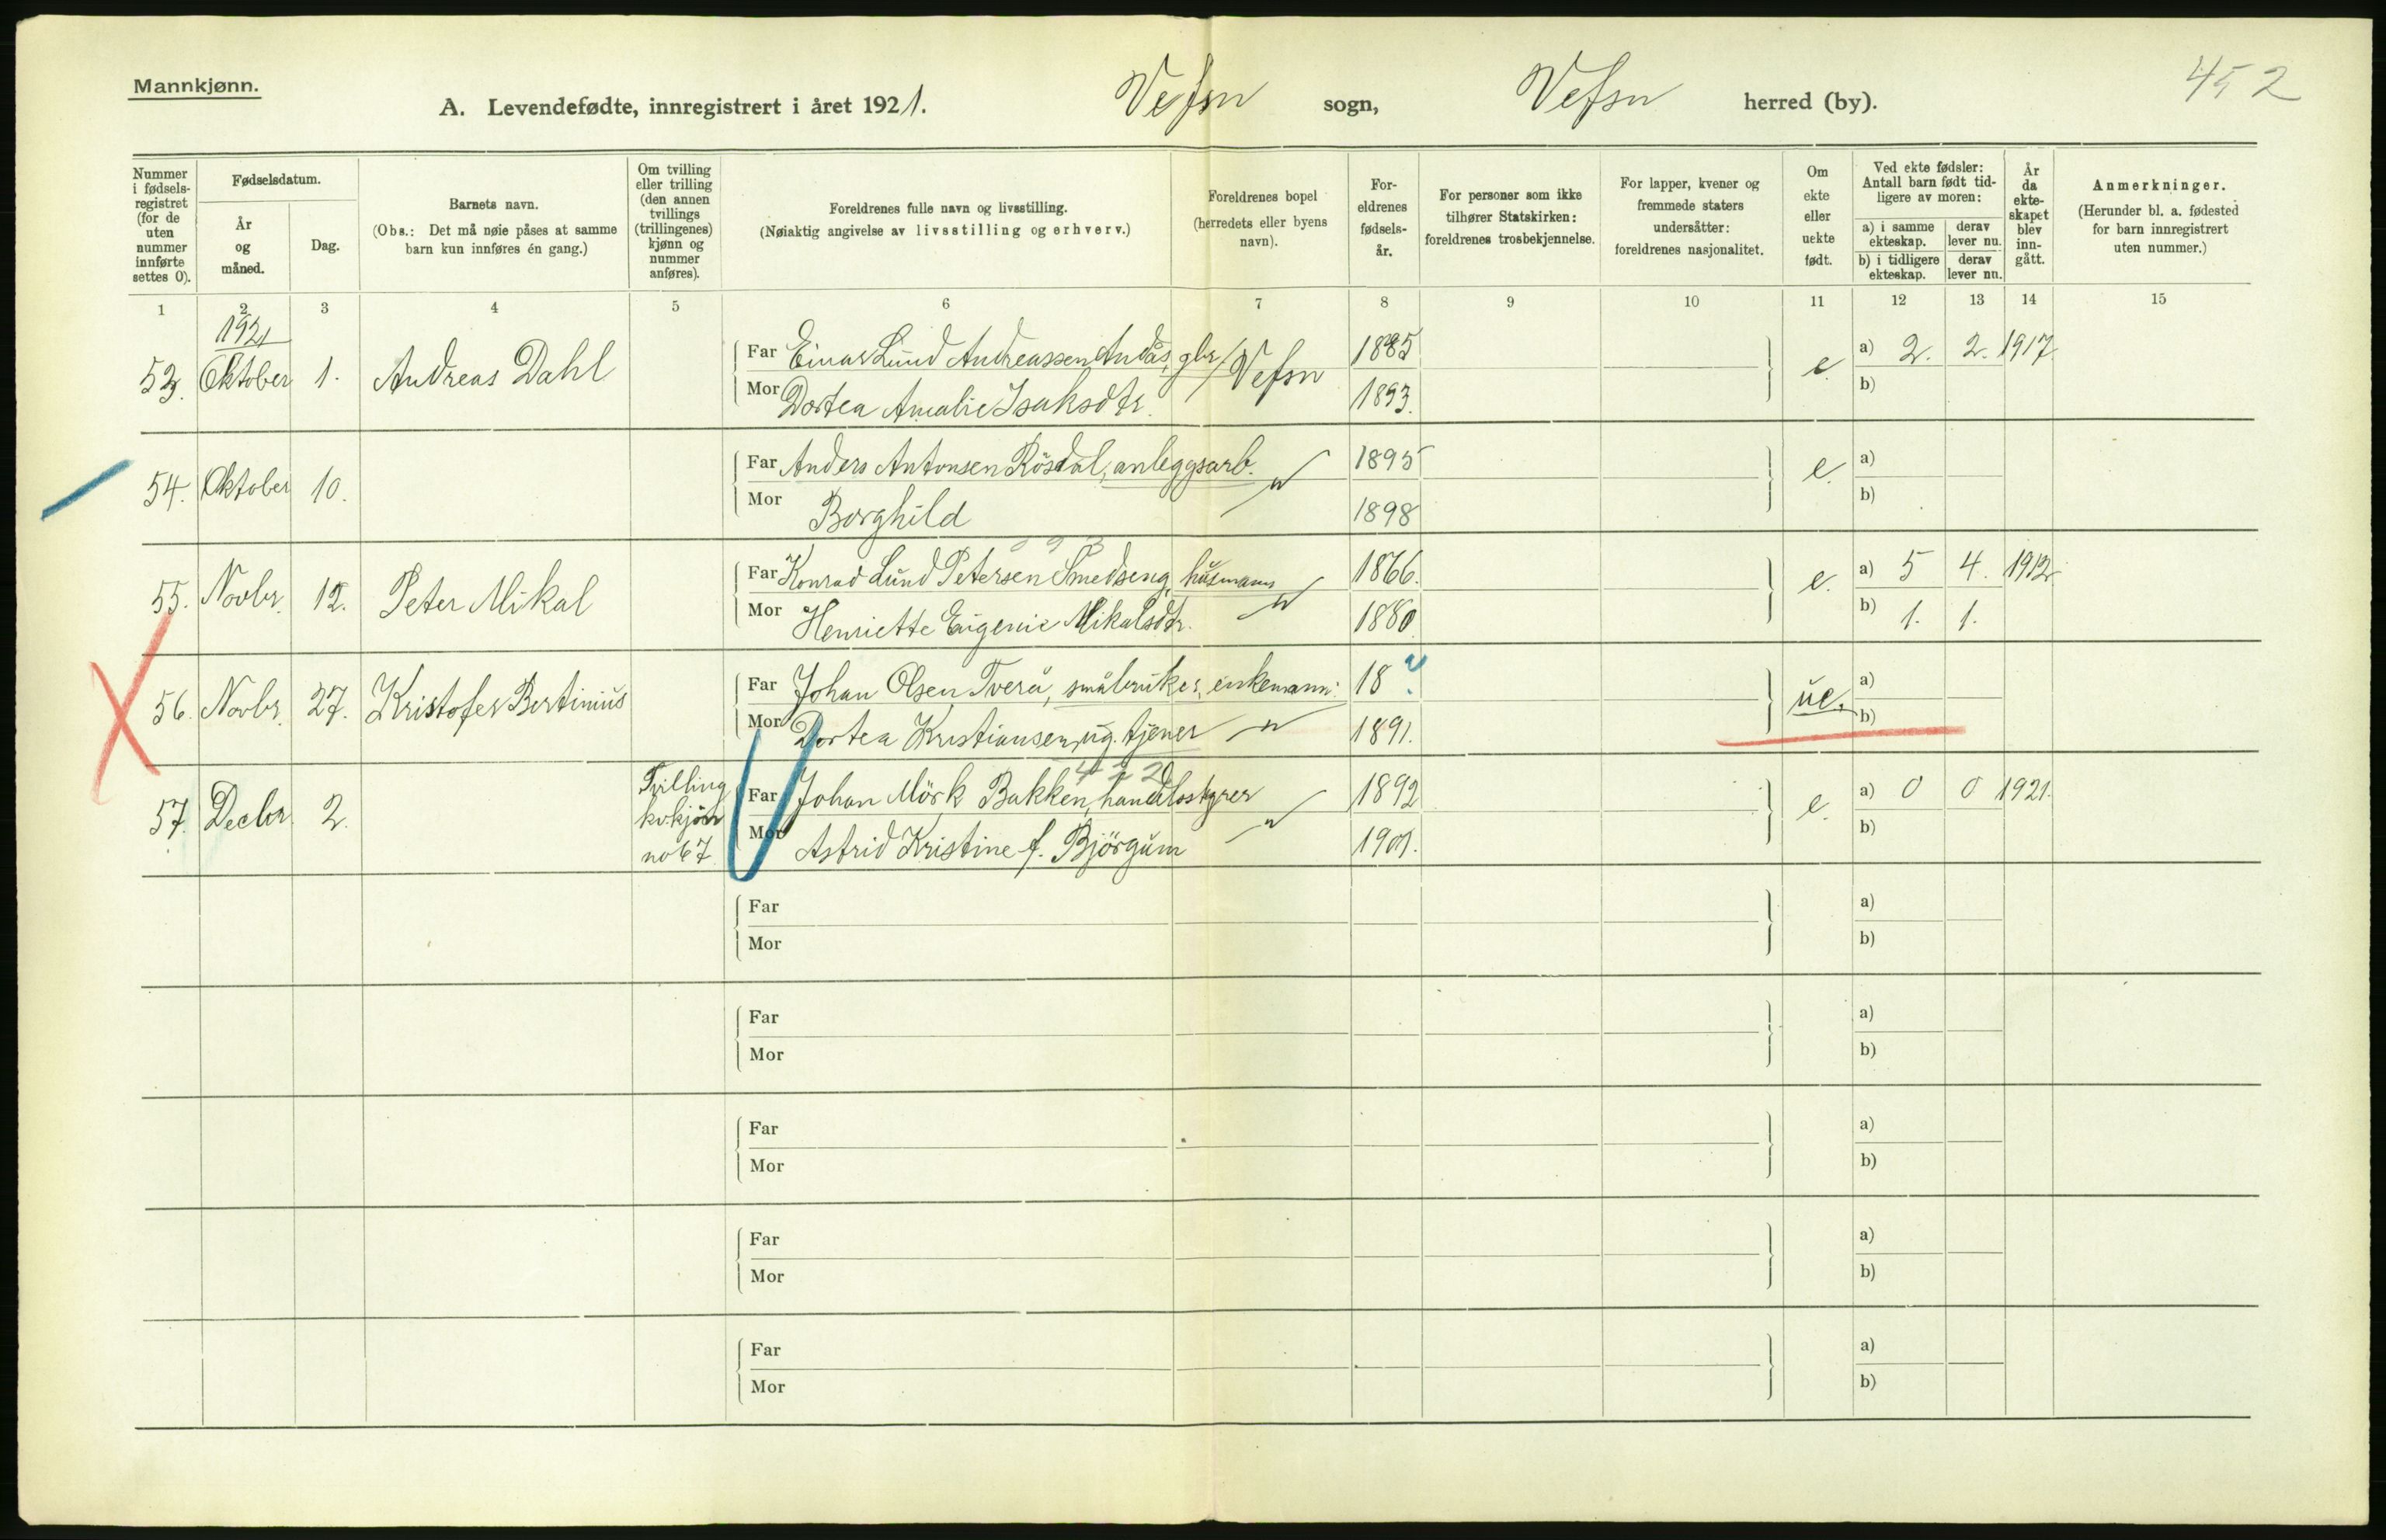 Mannkjønn.
452
A. Levendefødte, innregistrert i året 1921. Vefsn sogn, Vefsn herred (by).
Nummer i fødsels-registret (for de uten nummer innførte settes 0).
Fødselsdatum.
År og måned.
Dag.
Barnets navn.
(Obs.: Det må nøie påses at samme barn kun innføres én gang.)
Om tvilling eller trilling (den annen tvillings (trillingenes) kjønn og nummer anføres).
Foreldrenes fulle navn og livsstilling.
(Nøiaktig angivelse av livsstilling og erhverv.)
Foreldrenes bopel (herredets eller byens navn).
For-eldrenes fødsels-år.
For personer som ikke tilhører Statskirken: foreldrenes trosbekjennelse.
For lapper, kvener og fremmede staters undersåtter: foreldrenes nasjonalitet.
Om ekte eller uekte født.
Ved ekte fødsler: Antall barn født tid-ligere av moren:
a) i samme ekteskap. derav lever nu.
b) i tidligere ekteskap. derav lever nu.
År da ekte-skapet blev inn-gått.
Anmerkninger.
(Herunder bl. a. fødested for barn innregistrert uten nummer.)
1 2 3 4 5 6 7 8 9 10 11 12 13 14 15
1921
53. Oktober 1. Andreas Dahl Far Einar Lund Andreassen Andås, gbr. Vefsn 1885 e. a) 2. 2. 1917.
Mor Dortea Amalie Isaksdtr. 1893. b)
54. Oktober 10. Far Anders Antonsen Rösdal, anleggsarb. " 1895 e. a)
Mor Borghild 1898 b)
55. Novbr. 12. Peter Mikal Far Konrad Lund Petersen Smedseng, husmann " 1866. e. a) 5 4. 1912.
Mor Henriette Eugenie Mikalsdtr. 1880. b) 1. 1.
56. Novbr. 27. Kristofer Bertinius Far Johan Olsen Tverå, småbruker, enkemann. 18 ? ue. a)
Mor Dortea Kristiansen, ug. tjener " 1891. b)
422
57. Decbr. 2. Tvilling kvkjönn no 67 Far Johan Mörk Bakken, handelsstyrer " 1892 e. a) 0 0 1921.
Mor Astrid Kristine f. Björgum 1901. b)
Far a)
Mor b)
Far a)
Mor b)
Far a)
Mor b)
Far a)
Mor b)
Far a)
Mor b)